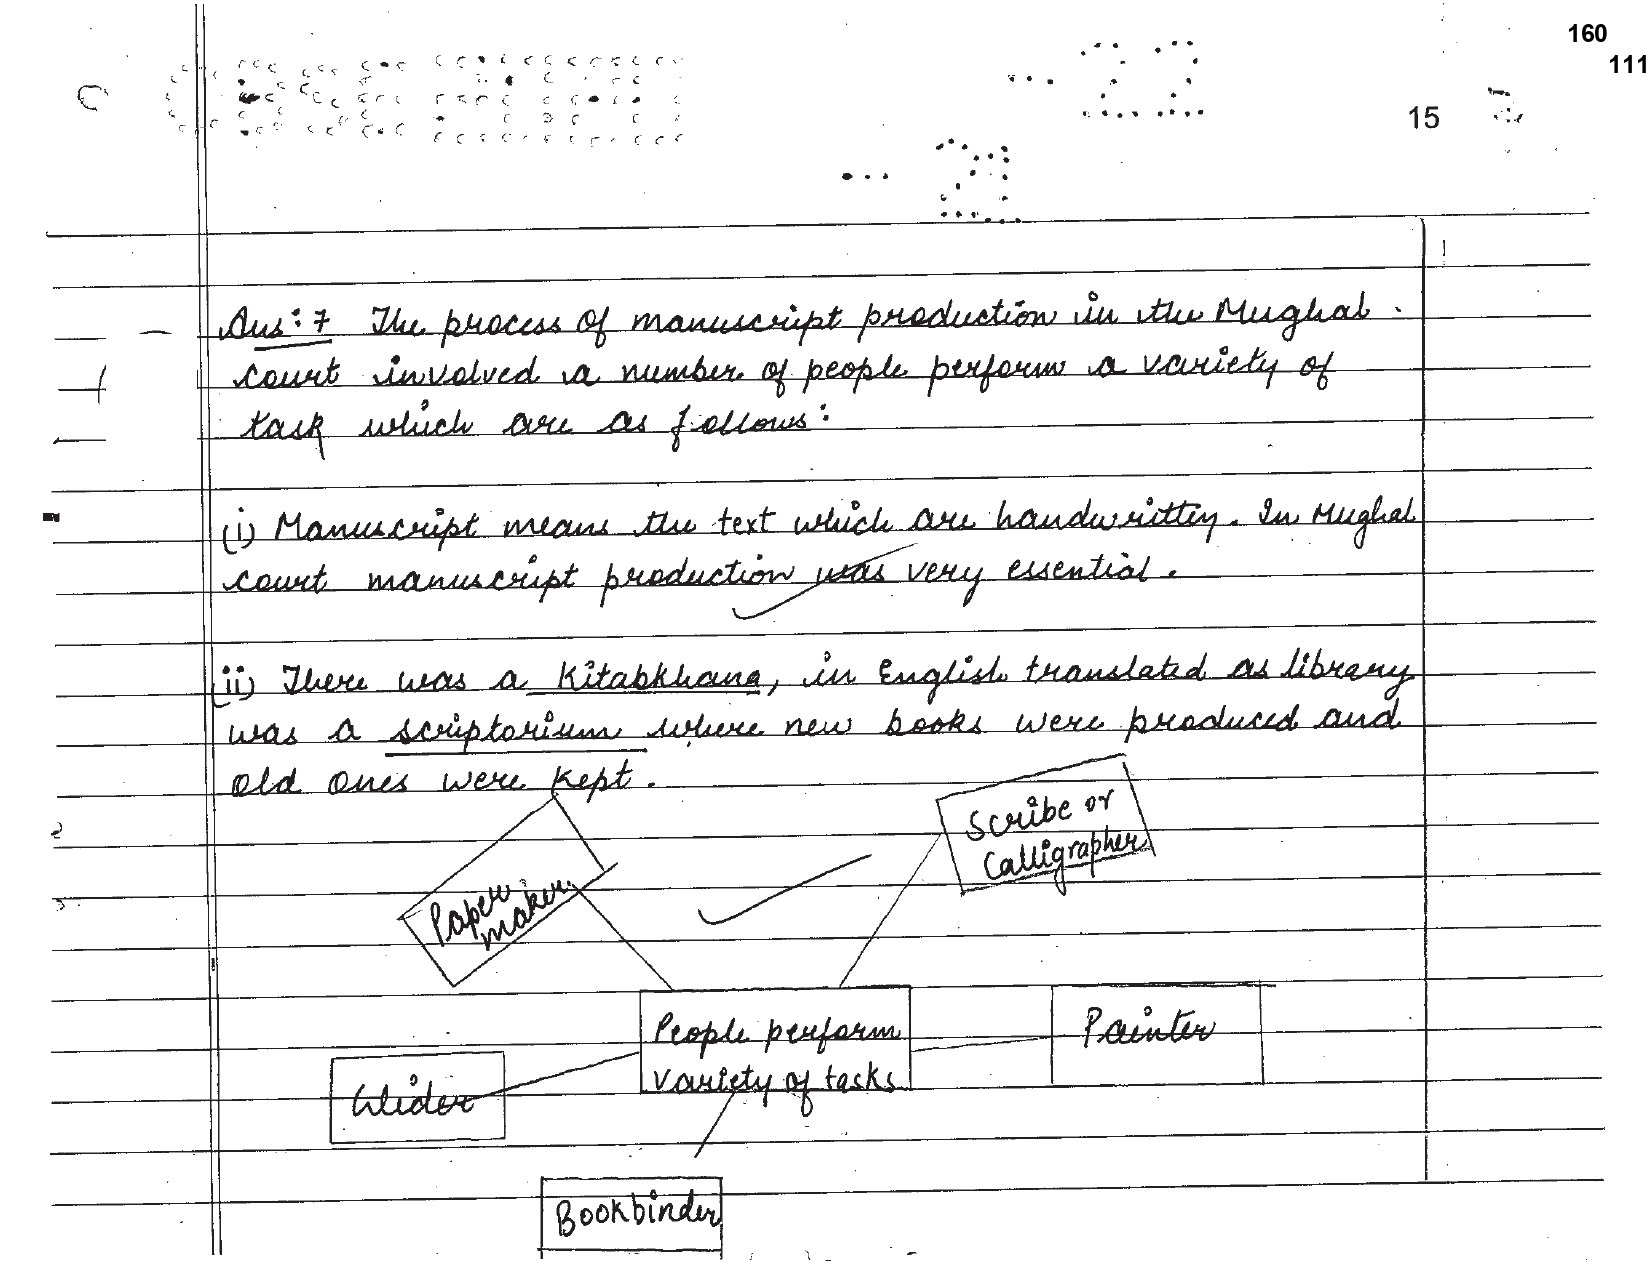 160
111
15
22
21
Ans:7 The process of manuscript production in the Mughal
court involved a number of people perform a variety of
task which are as follows:
(i) Manuscript means the text which are handwritten. In Mughal
court manuscript production was very essential.
(ii) There was a Kitabkhana, in English translated as library
was a scriptorium where new books were produced and
old ones were kept.
Scribe or
Calligrapher
Paper
maker
People perform
variety of tasks
Painter
Glider
Bookbinder